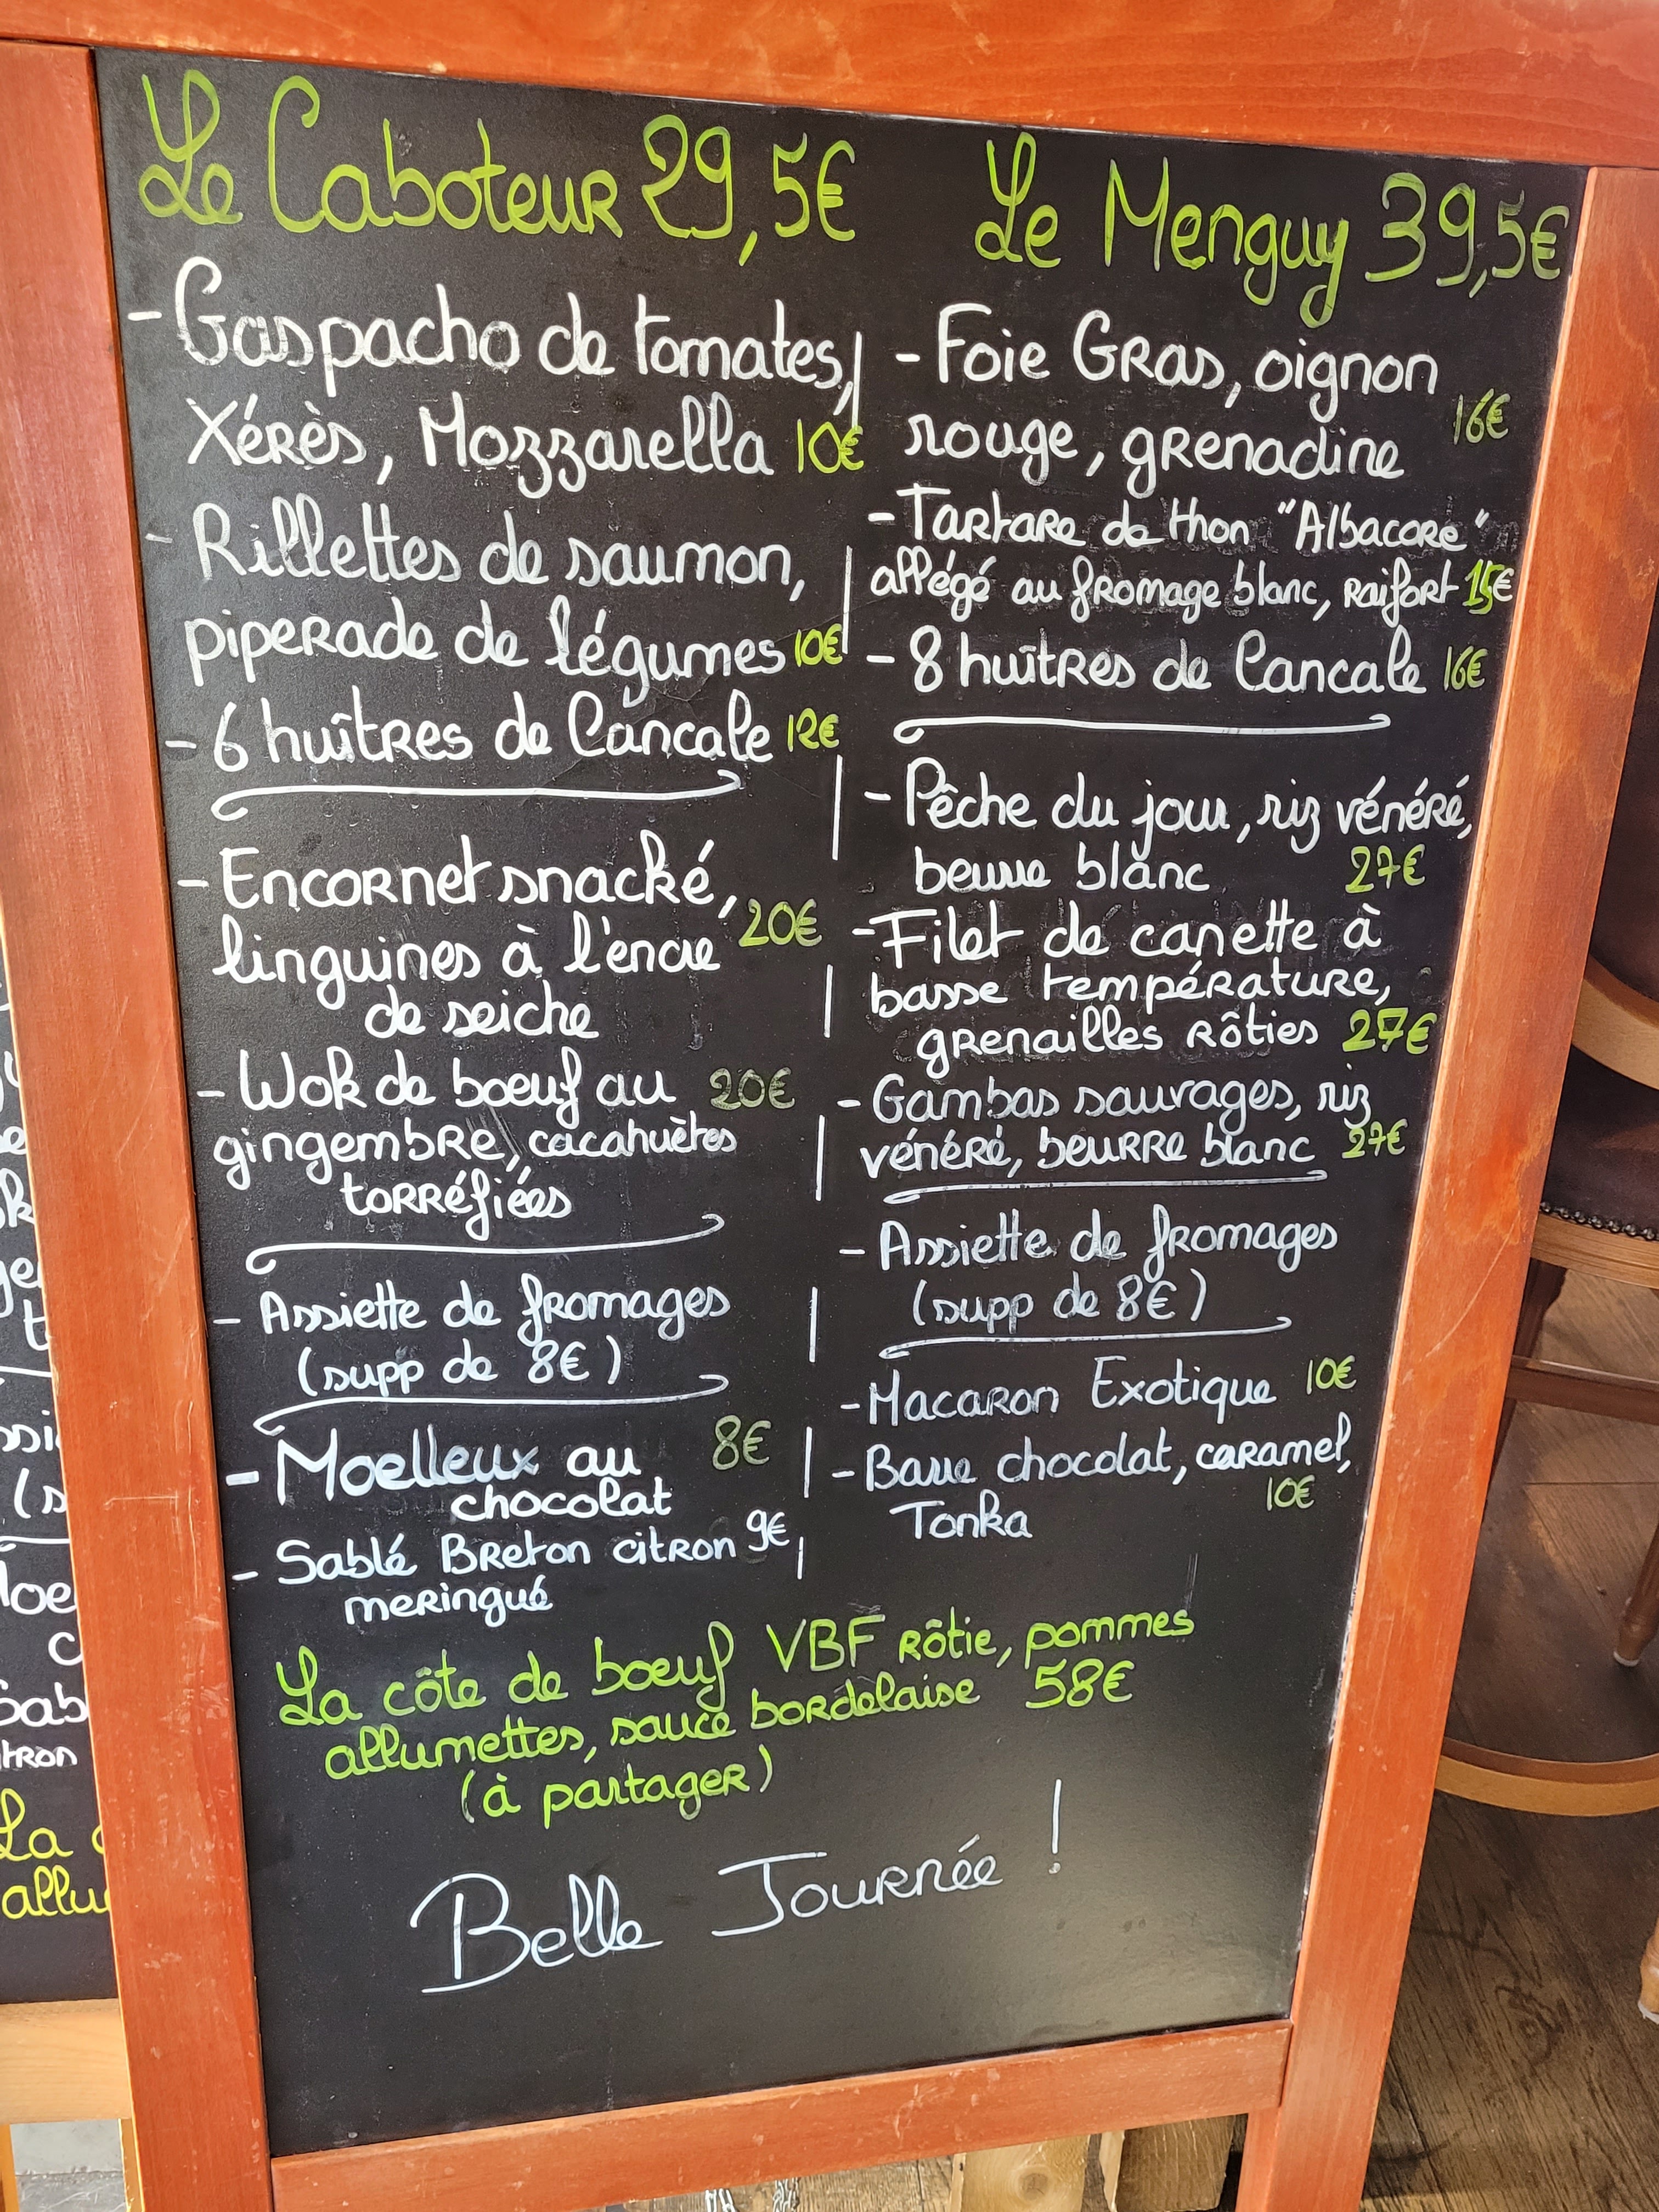 Le Caboteur 29,5€
- Gaspacho de tomates,
Xérès, Mozzarella 10€
- Rillettes de saumon,
piperade de légumes 10€
- 6 huîtres de Cancale 12€
- Encornet snacké,
linguines à l'encre 20€
de seiche
- Wok de boeuf au 20€
gingembre, cacahuètes
torréfiées
- Assiette de fromages
(supp de 8€)
- Moelleux au 8€
chocolat
- Sablé Breton citron 9€
meringué
Le Menguy 39,5€
- Foie Gras, oignon
rouge, grenadine 16€
- Tartare de thon "Albacore"
allégé au fromage blanc, raifort 15€
- 8 huîtres de Cancale 16€
- Pêche du jour, riz vénéré,
beurre blanc 27€
- Filet de canette à
basse température,
grenailles rôties 27€
- Gambas sauvages, riz
vénéré, beurre blanc 27€
- Assiette de fromages
(supp de 8€)
- Macaron Exotique 10€
- Barre chocolat, caramel,
10€
Tonka
La côte de boeuf VBF rôtie, pommes
allumettes, sauce bordelaise 58€
(à partager)
Belle Journée !